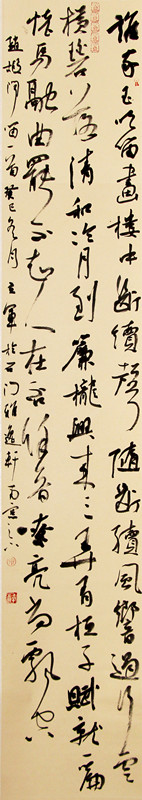 誰家吹笛畫樓中斷續聲隨斷續風響遏行雲
橫碧落清和冷月到簾櫳興來三弄有桓子賦就一篇
懷馬融曲罷不知人在否餘音嘹亮尚飄空
趙嘏聞笛一首癸巳冬月立軍於石門雅逸軒南窗